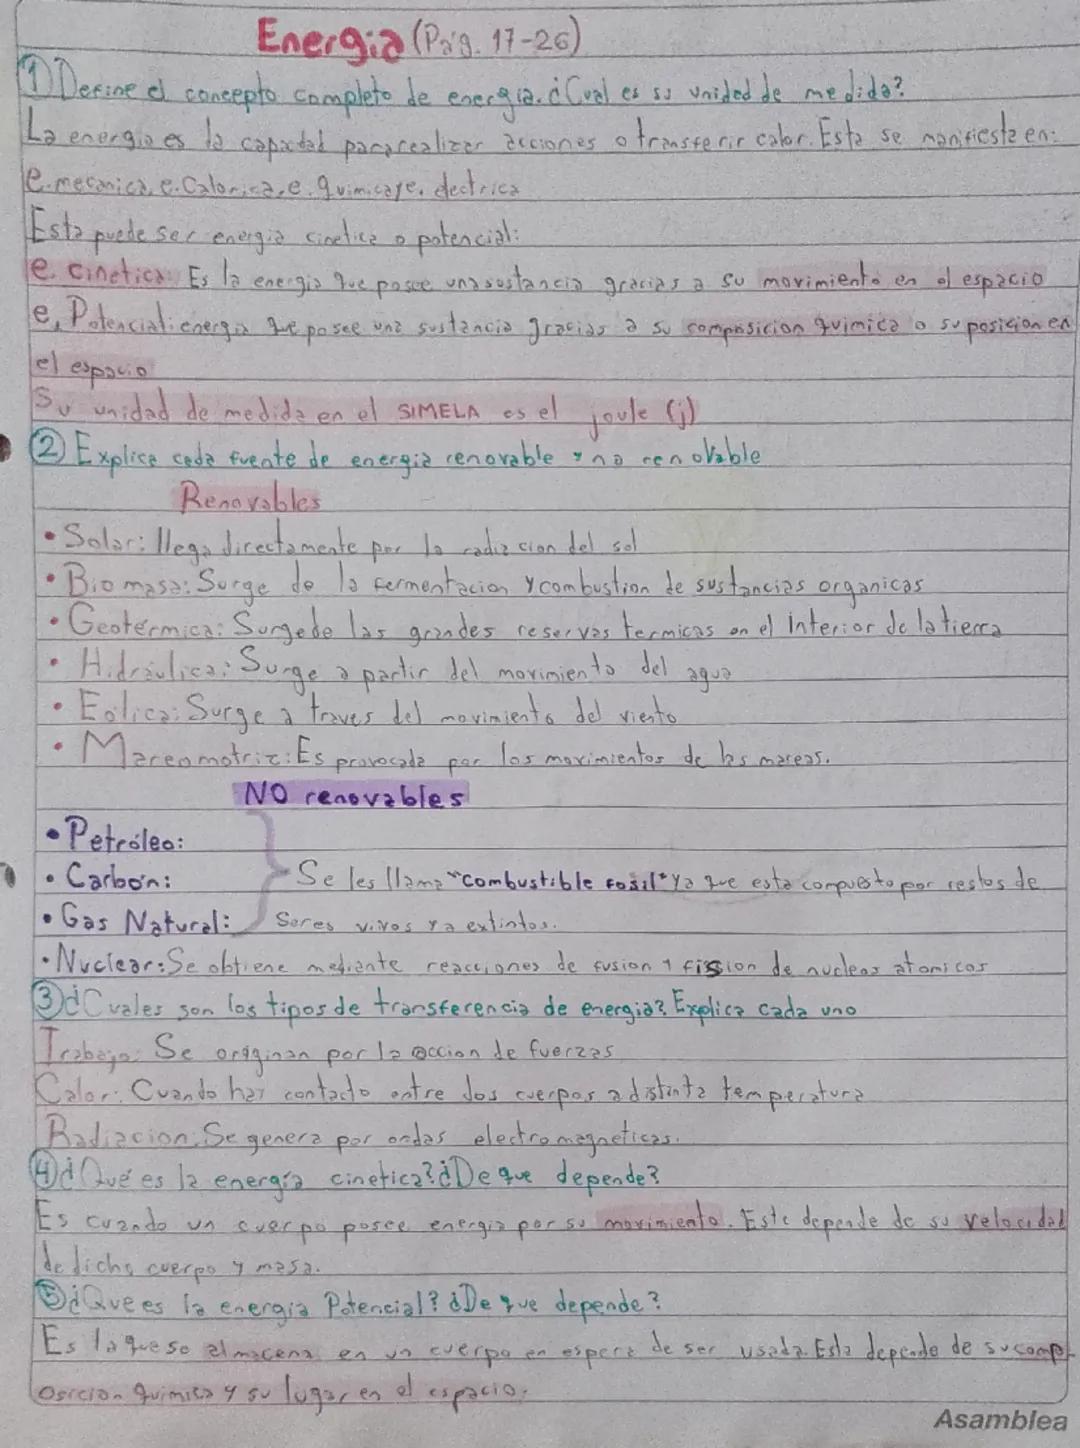 Energia (Pág. 17-26)
① Define el concepto completo de energia. ¿Cual es su unidad de medida?
La energia es la capactad para realizar acciones o transferir calor. Esta se manifiesta en:
e. mecanica, e. Calorica, e. quimica y e. electrica
Esta puede ser energia cinetica o potencial:
e. cinetica: Es la energia que posee una sustancia gracias a su movimiento en el espacio
e. Potencial: energia que posee una sustancia gracias a su composicion quimica o su posicion en
el espacio
Su unidad de medida en el SIMELA es el joule (j)
② Explica cada fuente de energia renovable y no renovable
Renovables
• Solar: llega directamente por la radiacion del sol
• Biomasa: Surge de la fermentacion y combustion de sustancias organicas
• Geotérmica: Surge de las grandes reservas termicas en el interior de la tierra
• Hidráulica: Surge a partir del movimiento del agua
• Eolica: Surge a traves del movimiento del viento
• Mareomotriz: Es provocada por los movimientos de las mareas.
NO renovables
• Petróleo:
• Carbón: Se les llama "combustible fosil" ya que esta compuesto por restos de
• Gas Natural: Seres vivos ya extintos.
• Nuclear: Se obtiene mediante reacciones de fusion y fission de nucleos atomicos
③ ¿Cuales son los tipos de transferencia de energia? Explica cada uno
Trabajo: Se originan por la accion de fuerzas
Calor: Cuando hay contacto entre dos cuerpos a distinta temperatura
Radiacion: Se genera por ondas electromagneticas.
④ ¿Qué es la energía cinetica? ¿De que depende?
Es cuando un cuerpo posee energia por su movimiento. Este depende de su velocidad
de dicho cuerpo y masa.
⑤ ¿Que es la energia Potencial? ¿De que depende?
Es la que se almacena en un cuerpo en espera de ser usada. Esta depende de su comp-
osicion quimica y su lugar en el espacio.
Asamblea